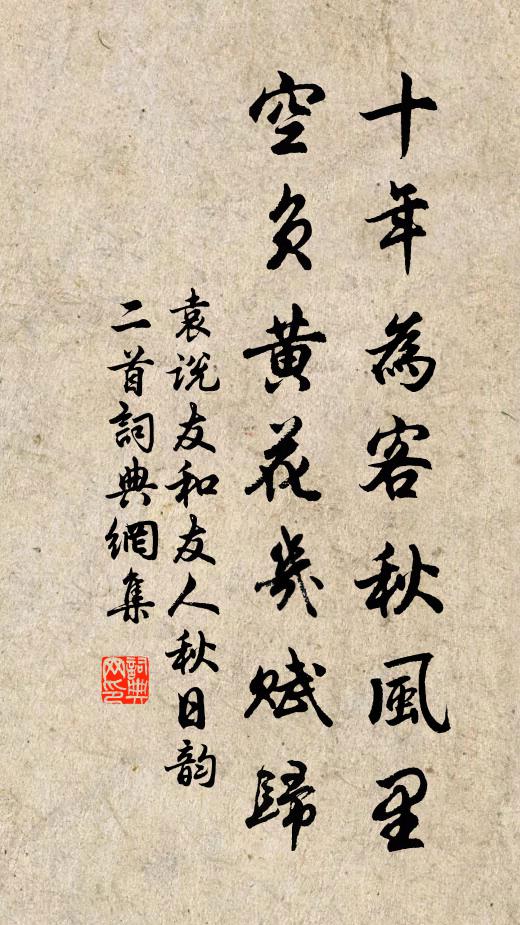 十年為客秋風里
空負黃花幾賦歸
袁说友和友人秋日韵
二首詞典網集
詞典網印